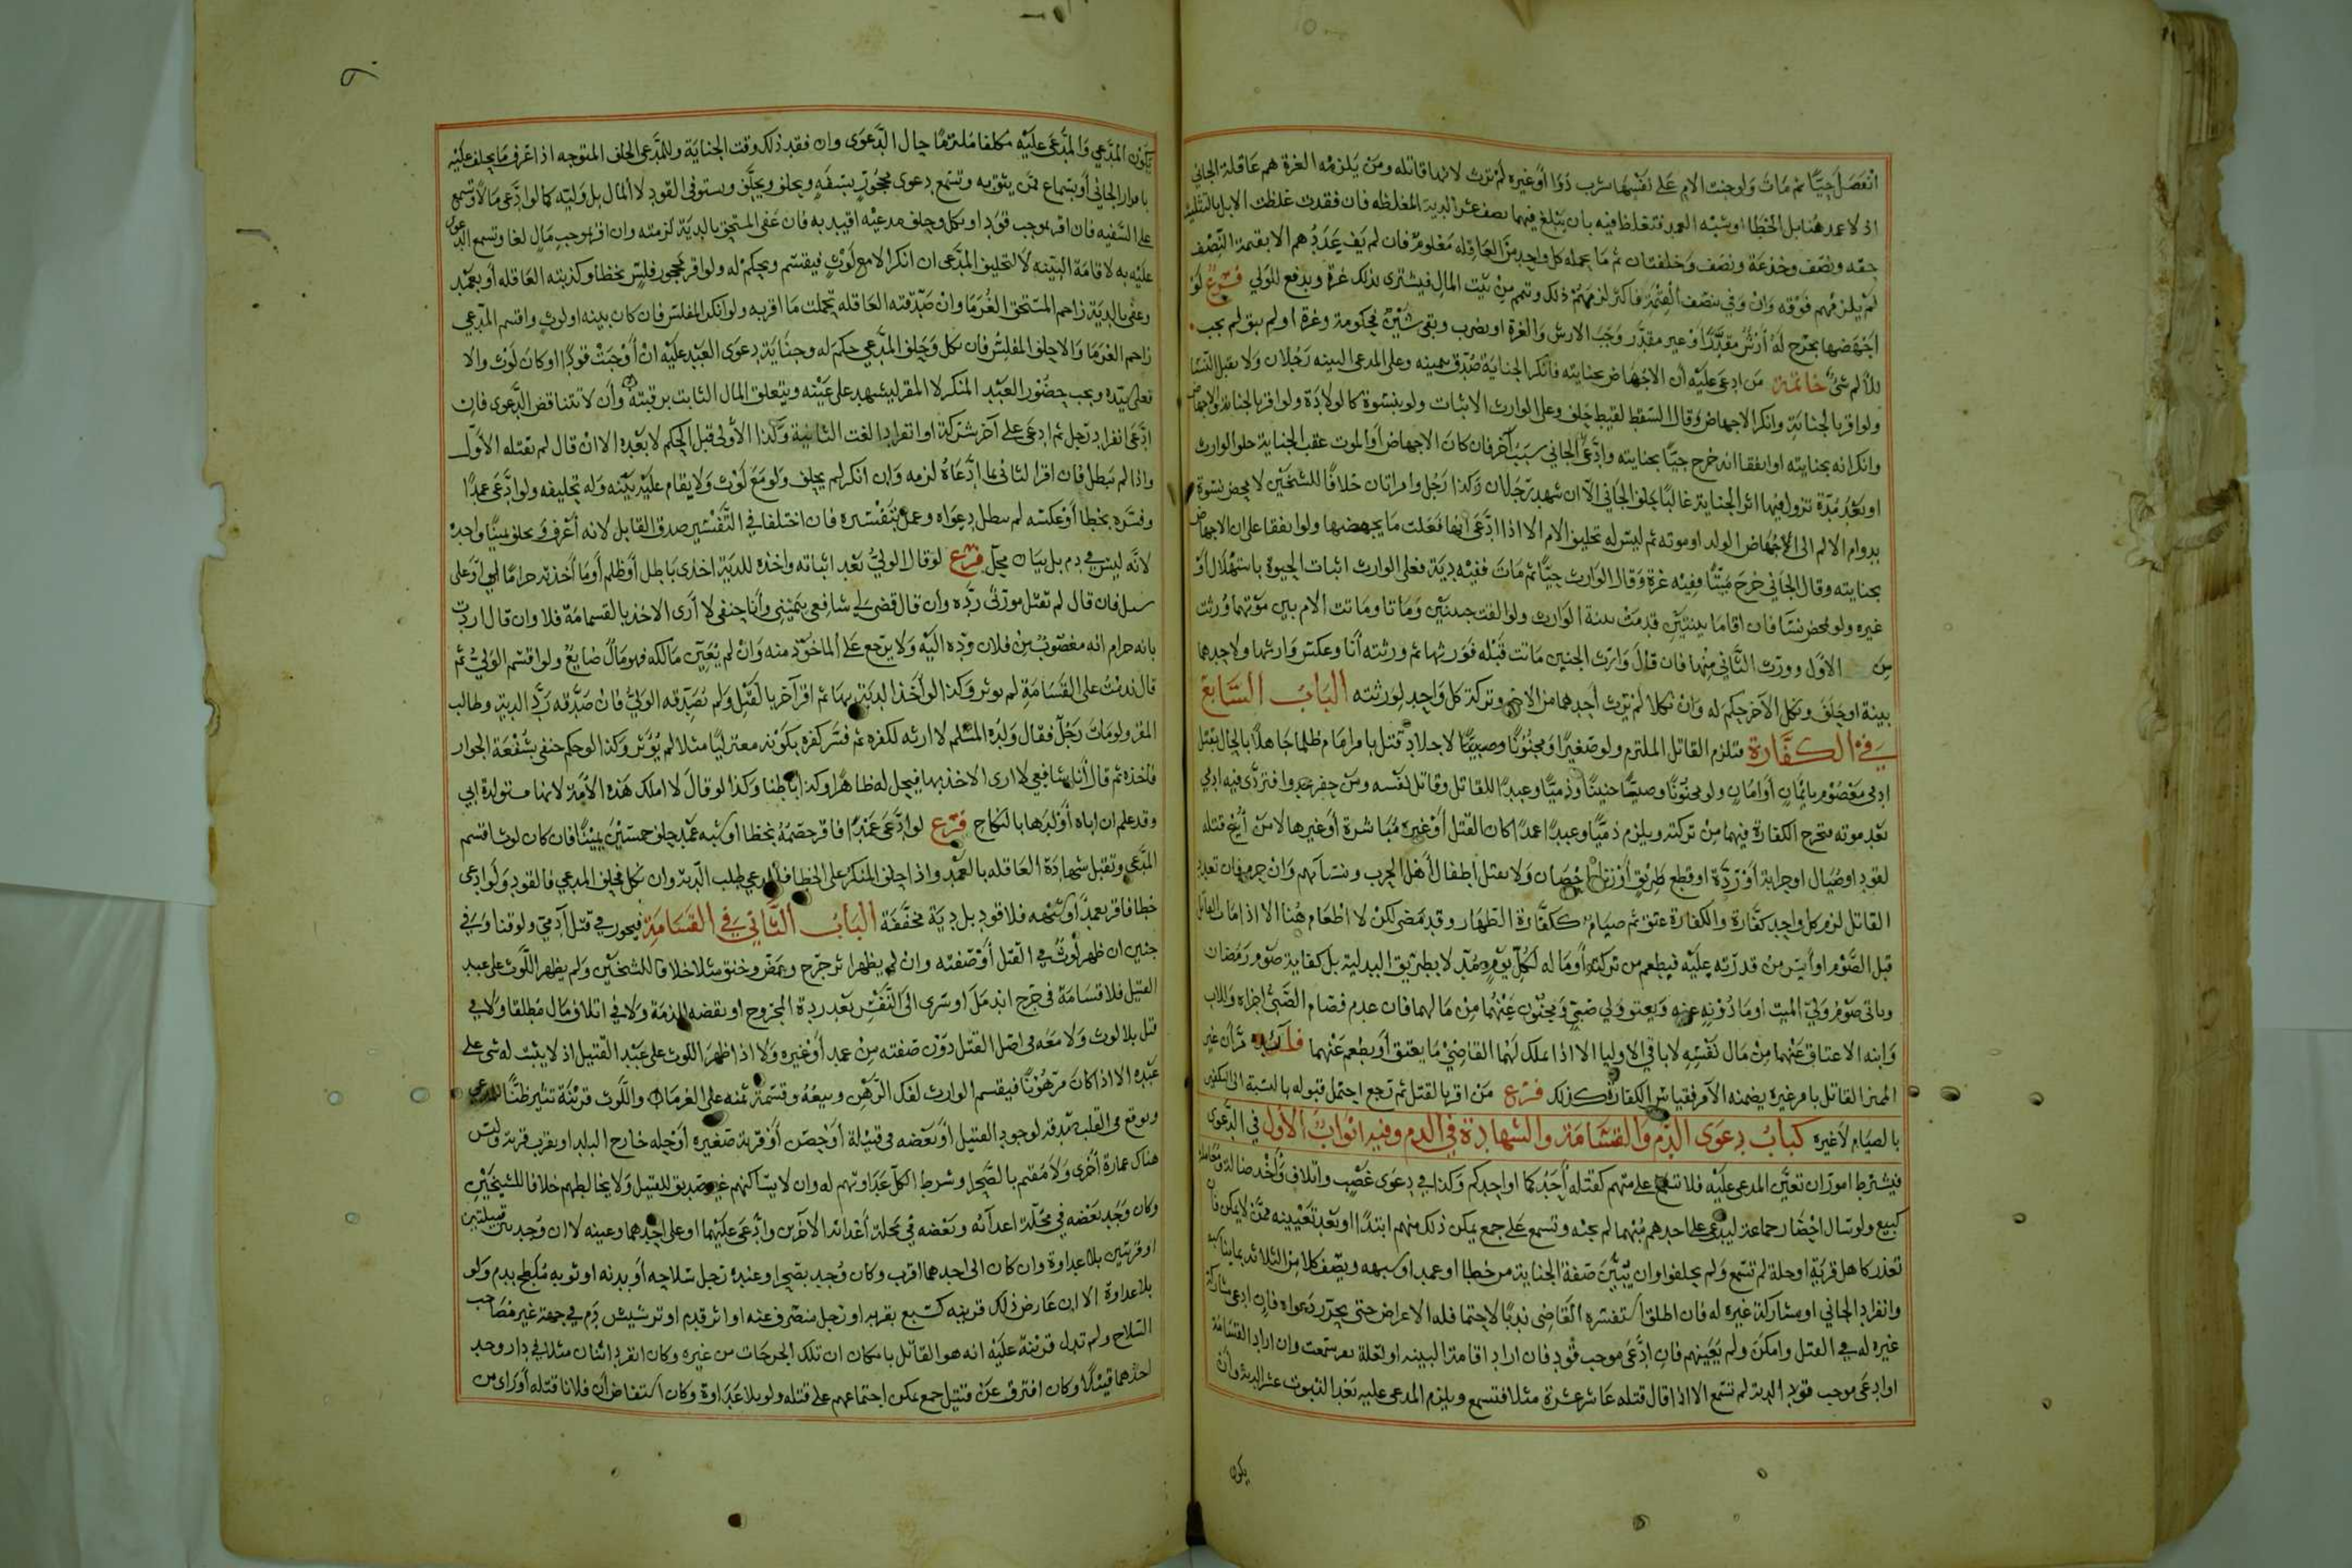 انفصل حيا ثم مات ولو جنت الام على نفسها بشرب دواء او غيره لم ترث لانها قاتلة ومن يلزمه الغرة هم عاقلة الجاني
اذ لا عمد هنا بل الخطا او شبه العمد فتغلظ فيه بان يبلغ فيهما نصف عشر الدية المغلظه فان فقدت غلظت الابل بالتثليث
حقه ونصف وجذعة ونصف وخلفتان ثم ما يحمله كل واحد من العاقله معلوم فان لم يف عددهم الا بقيمة النصف
لم يلزمهم فوقه وان وفى بنصف القيمة فاكثر لزمهم ذلك وتمم من بيت المال فيشترى بذلك غرة ويدفع للولي فرع لو
اجهضها بجرح له ارش مقدرا او غير مقدر وجب الارش والغرة او بضرب وبقى شين فحكومة وغرة او لم يبق لم يجب
للالم شئ خاتمة من ادعى عليه ان الاجهاض بجنايته فانكر الجناية صدق بيمينه وعلى المدعى البينه رجلان ولا يقبل النسا
ولو اقر بالجناية وانكر الاجهاض وقال السقط لقيط حلف وعلى الوارث الاثبات ولو بنسوة كالولادة ولو اقر بالجناية والاجهاض
وانكر انه بجنايته او اتفقا انه خرج حيا بجنايته وادعى الجاني سببا آخر فان كان الاجهاض او الموت عقب الجناية حلف الوارث
او بعد مدة تزول فيها اثر الجناية غالبا يحلف الجاني الا ان شهد رجلان وكذا رجل وامراتان خلافا للشيخين لا بمحض نسوة
بدوام الالم الى الاجهاض الولد او موته ثم ليس له تحليف الام الا اذا ادعى انها فعلت ما يجهضها ولو اتفقا على ان الاجهاض
بجنايته وقال الجاني خرج ميتا ففيه غرة وقال الوارث حيا ثم مات ففيه دية فعلى الوارث اثبات الحيوة باستهلال او
غيره ولو بمحض نسا فان اقاما بينتين قدمت بينة الوارث ولو القت جنينين وماتا وماتت الام بين موتهما ورثت
من الاول وورث الثاني منها فان قال وارث الجنين ماتت قبله فورثها ثم ورثته انا وعكس وارثها ولاحدهما
بينة او حلف ونكل الآخر حكم له وان نكلا لم يرث احدهما من الاخر وتركة كل واحد لورثته الباب السابع
في الكفارة فتلزم القاتل الملتزم ولو صغيرا ومجنونا وصبيا لا جلاد قتل بامر امام ظلما جاهلا بالحال بقتل
ادمى معصوم بايمان او امان ولو مجنونا وصبيا جنينا وذميا وعبدا للقاتل وقاتل نفسه ومن حفر عدوا فتردى فيه ادمى
بعد موته فتخرج الكفارة فيهما من تركته ويلزم ذميا وعبدا عمدا كان القتل او غيره مباشرة او غيرها لا من ابيح قتله
لقود او صيال او حرابة او ردة او قطع طريق او زنا احصان ولا بقتل اطفال اهل الحرب ونسآئهم وان حرم فان تعدد
القاتل لزم كل واحد كفارة والكفارة عتق ثم صيام ككفارة الظهار وقد مضى لكن لا اطعام هنا الا اذا مات القاتل
قبل الصوم او ايس من قدرته عليه فيطعم من تركته او ماله لكل يوم مد لا بطريق البدلية بل كفاية صوم رمضان
وياتى صوم ولي الميت او ماذونه عنه ويعتق ولي صبي ومجنون عنهما من مالهما فان عدم فصام الصبي اجزاه وللاب
وابنه الاعتاق عنهما من مال نفسه لا باقي الاوليا الا اذا ملك لهما القاضي ما يعتق او يطعم عنهما فائدة
القاتل بامر غيره يضمنه الآمر فقياس الكفارة كذلك فرع من اقر بالقتل ثم رجع احتمل قبوله بالنسبة الى التكفير
بالصيام لا غيره كتاب دعوى الدم والقسامة والشهادة في الدم وفيه ابواب الاول في الدعوى
فيشترط امور ان تعين المدعى عليه فلا تسمع على متهم كقتله احدكما او احدكم وكذا في دعوى غصب واتلاف واخذ ضالة ومعاملة
كبيع ولو سال احضار جماعة ليدعى على احدهم مبهما لم يجبه وتسمع على جمع يمكن ذلك منهم ابتدا او بعد تعيينه ممن لا يمكن فان
تعذر كاهل قرية او حلة لم تسمع ولم يحلفوا وان يبين صفة الجناية من خطا او عمد او شبهه ويصف كلا من الثلاثة بما يناسبه
وانفراد الجاني او مشاركة غيره له فان اطلق استفسره القاضى ندبا لا حتما فله الاعراض حتى يحرر دعواه فان ادعى مشاركة
غيره له في القتل وامكن ولم يعينهم فان ادعى موجب قود فان اراد اقامة البينه او لعلة سمعت وان اراد القسامة
او ادعى موجب قود الدية لم تسمع الا اذا قال قتله عاشر عشرة مثلا فتسمع ويلزم المدعى عليه بعد الثبوت عشر الدية وان
يكون
يكون المدعي والمدعى عليه مكلفا ملتزما حال الدعوى وان فقد ذلك وقت الجناية وللمدعى الحلف المتوجه اذا عرف ما يحلف عليه
باقرار الجاني او بسماع ممن يثق به وتسمع دعوى محجور بسفه ويحلف ويحلف ويستوفى القود لا المال بل وليه كما لو ادعى مالا وتسمع
على السفيه فان اقر بموجب قود او نكل وحلف مدعيه اقيد به فان عفى المستحق بالدية لزمته وان اقر بموجب مال لغا وتسمع الدعوى
عليه به لاقامة البينه لا لتحليف المدعى ان انكر الا مع لوث فيقسم ويحكم له ولو اقر محجور فلس بخطا وكذبته العاقله او بعمد
وعفى بالدية زاحم المستحق الغرما وان صدقته العاقله تحملت ما اقر به ولو انكر المفلس فان كان بينه او لوث واقسم المدعي
زاحم الغرما والا حلف المفلس فان نكل وحلف المدعي حكم له وجناية دعوى العبد عليه ان اوجبت قودا او كان لوث والا
فعلى سيده ويجب حضور العبد المنكر لا المقر ليشهد على عينه ويتعلق المال الثابت برقبته وان لا تتناقض الدعوى فان
ادعى انفراد رجل ثم ادعى على آخر شركة او انفرادا لغت الثانية وكذا الأولى قبل الحكم لا بعده الا ان قال لم يقتله الاول
واذا لم تبطل فان اقر الثانى بما ادعاه لزمه وان انكر لم يحلف ولو مع لوث ولا يقام عليه بينه وله تحليفه ولو ادعى عمدا
وفسره بخطا او عكسه لم تبطل دعواه وعمل بتفسيره فان اختلفا في التفسير صدق القابل لانه اعرف ويحلف يمينا واحد
لانه ليس في دم بل بيان محل فرع لو قال الولي بعد اثباته واخذه للدية اخذى باطل او ظلم او ما اخذته حرام او على
سئل فان قال لم تقتل مورثى رده وان قال قضى لي شافعي بيميني وانا حنفي لا ارى الاخذ بالقسامة فلا وان قال اردت
بانه حرام انه مغصوب من فلان رده اليه ولا يرجع على الماخوذ منه وان لم يعين مالكه فهو مال ضايع ولو اقسم الولي ثم
قال ندمت على القسامة لم يوثر وكذا لو اخذ الدية بها ثم اقر آخر بالقتل ولم يصدقه الولي فان صدقه رد الدية وطالب
المقر ولو مات رجل فقال ولده المسلم لا ارثه لكفره ثم فسر كفره بكونه معتزليا مثلا لم يؤثر وكذا لو حكم حنفى بشفعة الجوار
فاخذه ثم قال انا شافعي لا ارى الاخذ بها فيحل له ظاهرا وكذا باطنا وكذا لو قال لا املك هذه الامة لانها مستولدة ابي
وقد علم ان اباه اولدها بالنكاح فرع لو ادعى عمدا فاقر خصمه بخطا او شبه عمد حلف خمسين يمينا فان كان لوث اقسم
المدعى وتقبل شهادة العاقله بالعمد واذا حلف المنكر على الخطا فللمدعي طلب الدية وان نكل فحلف المدعي فالقود ولو ادعى
خطا فاقر بعمد او شبهه فلا قود بل دية مخففة الباب الثاني في القسامة فيجوز في قتل آدمي ولو قنا وفي
جنين ان ظهر لوث في القتل او صفته وان لم يظهر اثر جرح وعض وخنق مثلا خلافا للشيخين ولم يظهر اللوث على عبد
القتيل فلا قسامة في جرح اندمل او سرى الى النفس بعد ردة المجروح او نقضه الذمة ولا في اتلاف مال مطلقا ولا في
قتل بلا لوث ولا معه فى اصل القتل دون صفته من عمد او غيره ولا اذا ظهر اللوث على عبد القتيل اذ لا يثبت له شى على
عبده الا اذا كان مرهونا فيقسم الوارث لفك الرهن وبيعه وقسمة ثمنه على الغرماء واللوث قرينة تثير ظنا
ويوقع فى القلب صدقه لوجود القتيل او بعضه فى قبيلة او حصن او قرية صغيره او حلة خارج البلد او بقرب قرية وليس
هناك عمارة اخرى ولا مقيم بالصحرا وشرط الكل عداوتهم له وان لا يساكنهم غير صديق للقتيل ولا يخالطهم خلافا للشيخين
وكان وجد بعضه في محلة اعدائه وبعضه في محلة أعدائه الآخرين وادعى عليهما او على احدهما وعينه لا ان وجد بين قبيلتين
او قريتين بلا عداوة وان كان الى احدهما اقرب وكان وجد بصحرا وعنده رجل سلاحه او بدنه او ثوبه ملطخ بدم ولو
بلا عداوة الا ان عارض ذلك قرينه كسبع بقربه او رجل منصرف عنه او اثر قدم او ترشيش دم في جهة غير صاحب
السلاح ولم تدل قرينة عليه انه هو القاتل بامكان ان تلك الجراحات من غيره وكان انفرد اثنان مثلا في دار وجد
احدهما قتيلا وكان افترق عن قتيل جمع يمكن اجتماعهم على قتله ولو بلا عداوة وكان استفاض ان فلانا قتله او راى من